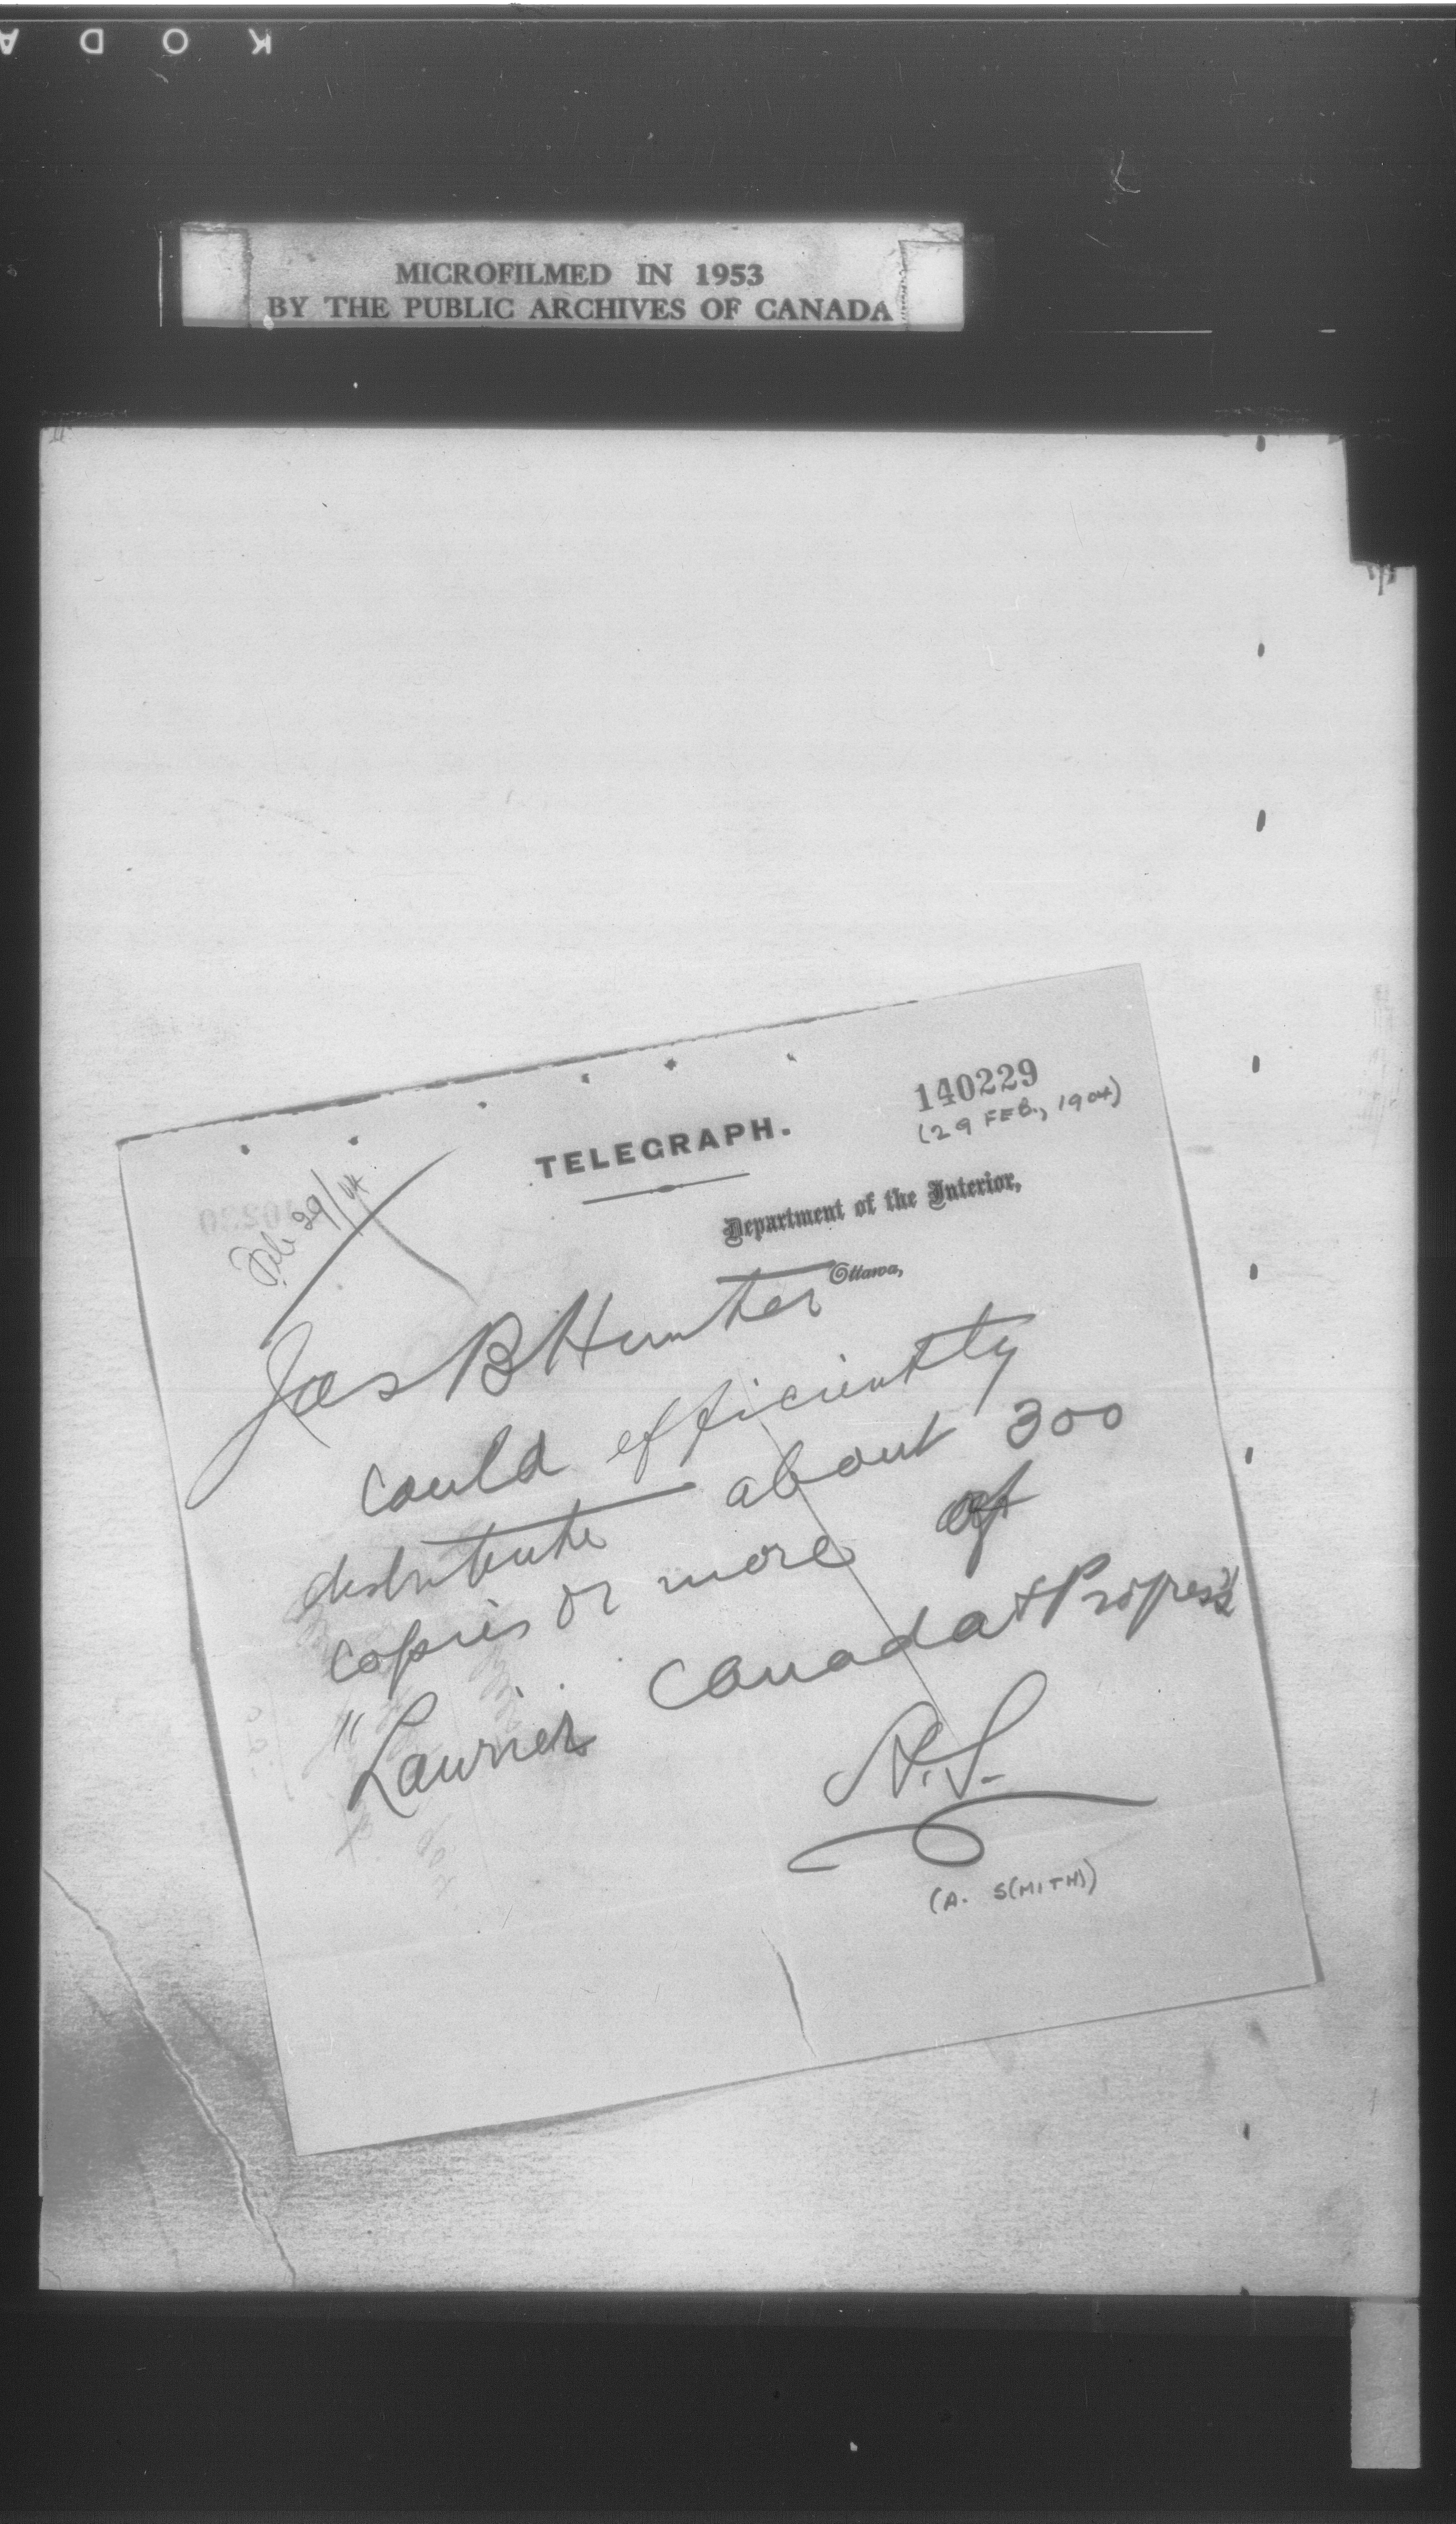 KODA
MICROFILMED IN 1953
BY THE PUBLIC ARCHIVES OF CANADA
140229
(29 FEB., 1904)
TELEGRAPH.
Feb 29/04
Department of the Interior,
Ottawa,
Jas B Hunter
could efficiently
distribute about 300
copies or more of
"Laurier Canada & Progress"
A.S.
(A. S(MITH))